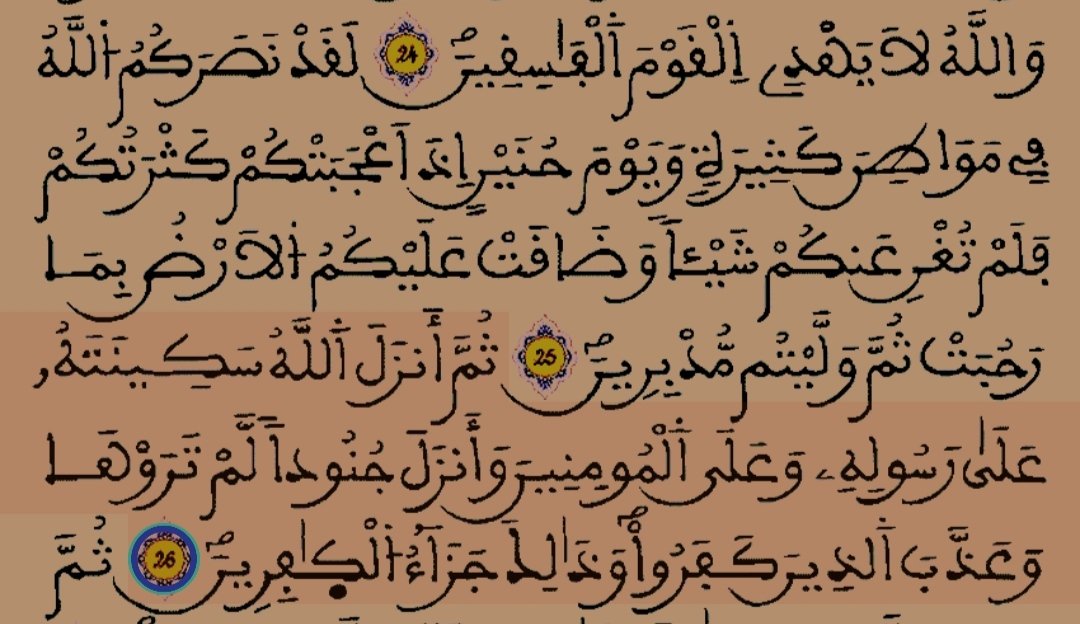 وَاللَّهُ لَا يَهْدِي اِلْقَوْمَ اَلْفَٰسِقِينَۖ 24 لَقَدْ نَصَرَكُمُ اُللَّهُ
فِي مَوَاطِنَ كَثِيرَةٖ وَيَوْمَ حُنَيْنٍ اِذَ اَعْجَبَتْكُمْ كَثْرَتُكُمْ
فَلَمْ تُغْنِ عَنكُمْ شَيْـٔاٗ وَضَاقَتْ عَلَيْكُمُ اُلَارْضُ بِمَا
رَحُبَتْ ثُمَّ وَلَّيْتُم مُّدْبِرِينَۖ 25 ثُمَّ أَنزَلَ اَللَّهُ سَكِينَتَهُۥ
عَلَىٰ رَسُولِهِۦ وَعَلَى اَلْمُومِنِينَ وَأَنزَلَ جُنُوداٗ لَّمْ تَرَوْهَا
وَعَذَّبَ اَلذِينَ كَفَرُواْۖ وَذَٰلِكَ جَزَآءُ اُلْكٰ۪فِرِينَۖ 26 ثُمَّ